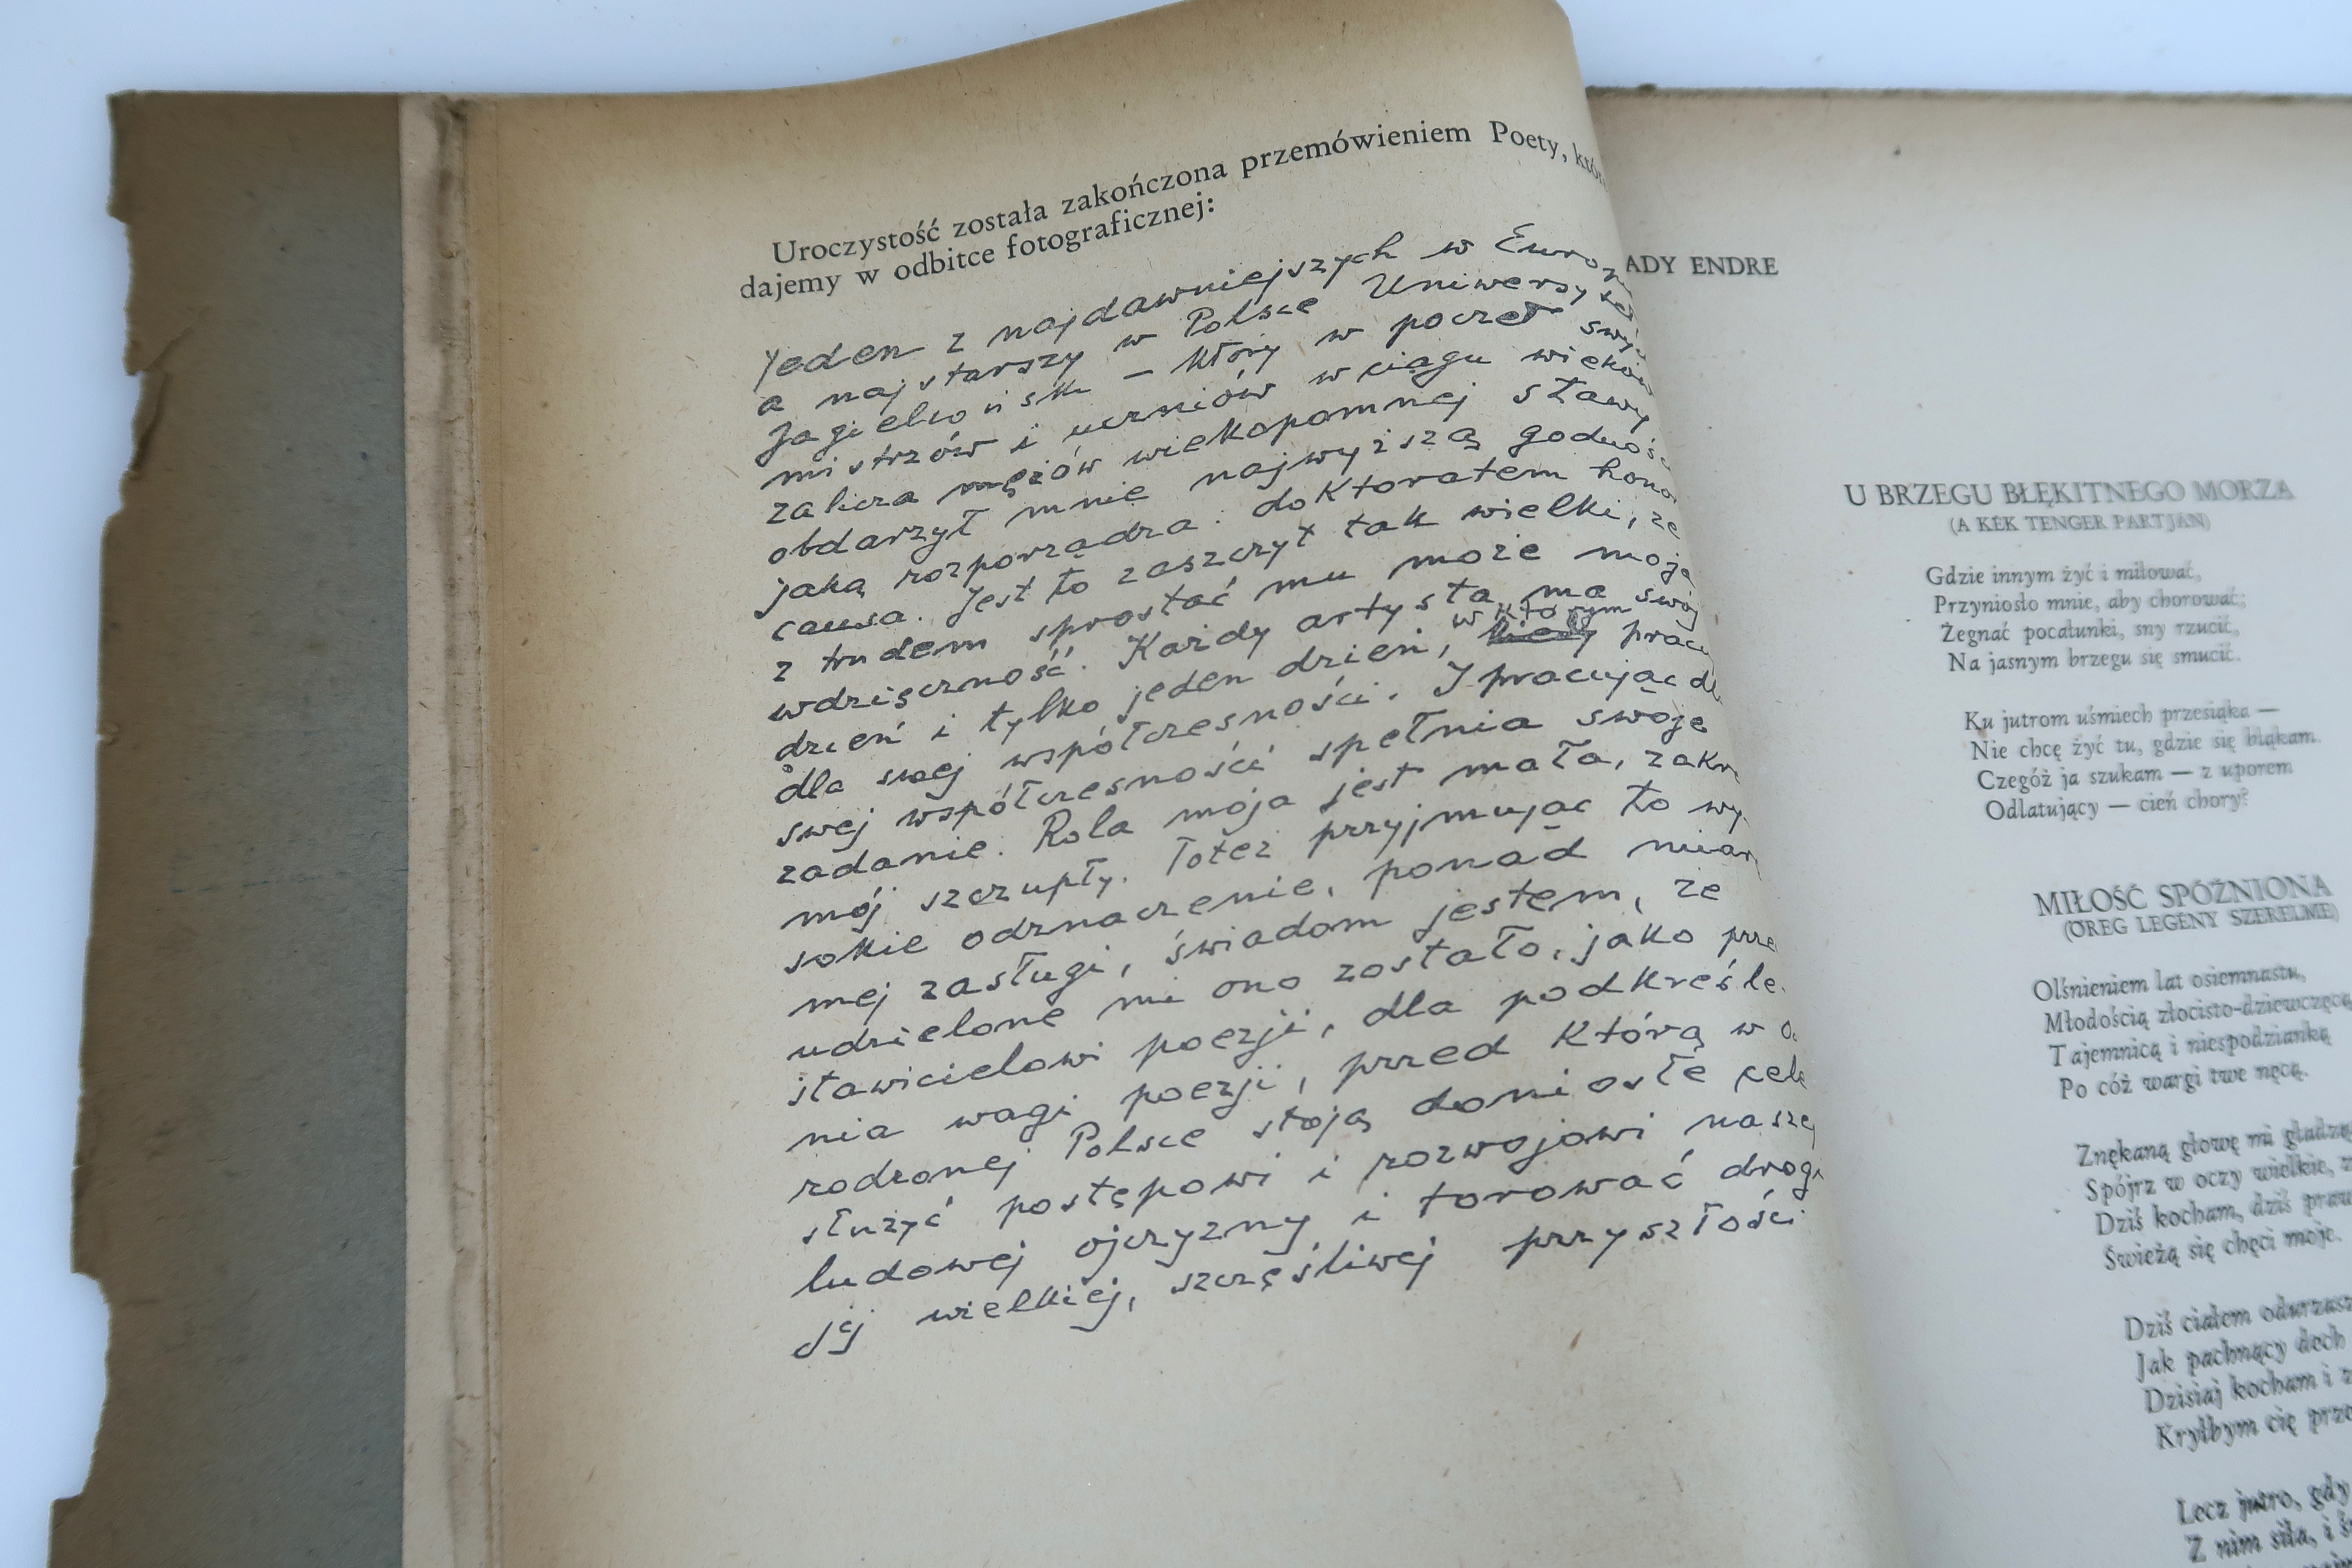 Uroczystość została zakończona przemówieniem Poety,
dajemy w odbitce fotograficznej:
Jeden z najdawniejszych w
a najstarszy w Polsce
Jagielloński – który w poczet
mistrzów i uczniów w ciągu wieków
zalicza mężów wiekopomnej sławy
obdarzył mnie najwyższą
jaką rozporządza: doktoratem
causa. Jest to zaszczyt tak wielki, że
z trudem sprostać mu może moja
wdzięczność. Każdy artysta ma swój
w którym
dzień i tylko jeden dzień, kiedy
dla swej współczesności. I pracując
swej współczesności spełnia swoje
zadanie. Rola moja jest mała,
mój szczupły. Toteż przyjmując to wy-
sokie odznaczenie, ponad
mej zasługi, świadom jestem, że
udzielone mi ono zostało, jako
stawicielowi poezji, dla
nia wagi poezji, przed którą w
rodzonej Polsce stoją doniosłe
służyć postępowi i rozwojowi
ludowej ojczyzny i torować
jej wielkiej, szczęśliwej przyszłości
ADY ENDRE
U BRZEGU BŁĘKITNEGO MORZA
(A KÉK TENGER PARTJÁN)
Gdzie innym żyć i miłować,
Przyniosło mnie, aby chorować;
Żegnać pocałunki, sny rzucić,
Na jasnym brzegu się smucić.
Ku jutrom uśmiech przesiąka —
Nie chcę żyć tu, gdzie się błąkam.
Czegóż ja szukam — z uporem
Odlatujący — cień chory?
MIŁOŚĆ SPÓŹNIONA
(ÖREG LEGÉNY SZERELME)
Olśnieniem lat osiemnastu,
Młodością złocisto-dziewczęcą,
Tajemnicą i niespodzianką
Po cóż wargi twe nęcą.
Znękaną głowę mi
Spójrz w oczy wielkie,
Dziś kocham, dziś
Świeżą się chęci moje.
Dziś ciałem
Jak pachnący dech
Dzisiaj kocham i
Kryłbym cię
Lecz jutro, gdy
Z nim siła, i